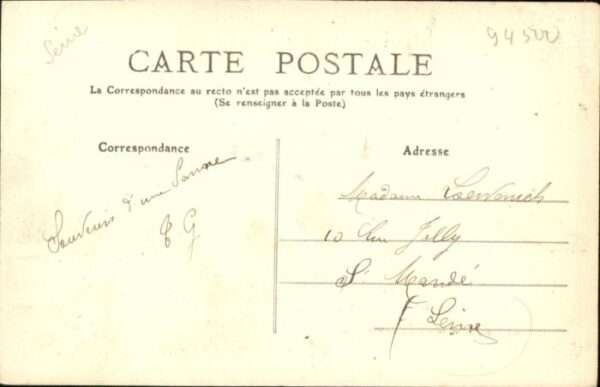 Seine
94500
CARTE POSTALE
La Correspondance au recto n'est pas acceptée par tous les pays étrangers
(Se renseigner à la Poste)
Correspondance
Adresse
Souvenir d'une
G
Madame
10 Rue Jolly
St Mandé
Seine